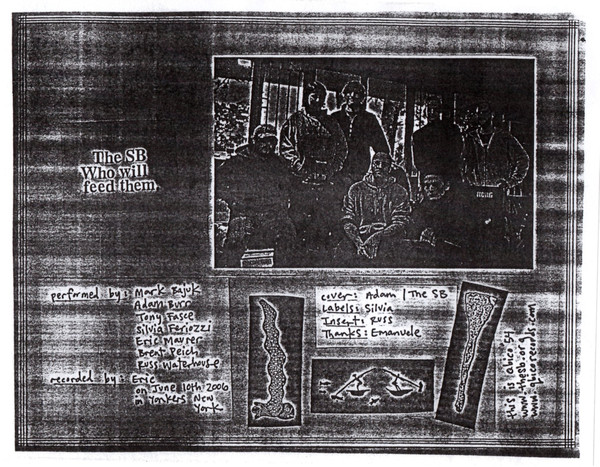 The SB
Who will
feed them
performed by: Mark Bajuk
Adam Burr
Tony Fasce
Silvia Feriozzi
Eric Maurer
Brent Reich
Russ Waterhouse
recorded by: Eric
on June 10th 2006
in Yonkers New
York
cover: Adam | The SB
Labels: Silvia
Insert: Russ
Thanks: Emanuele
this is alice 54
www.thesb.org